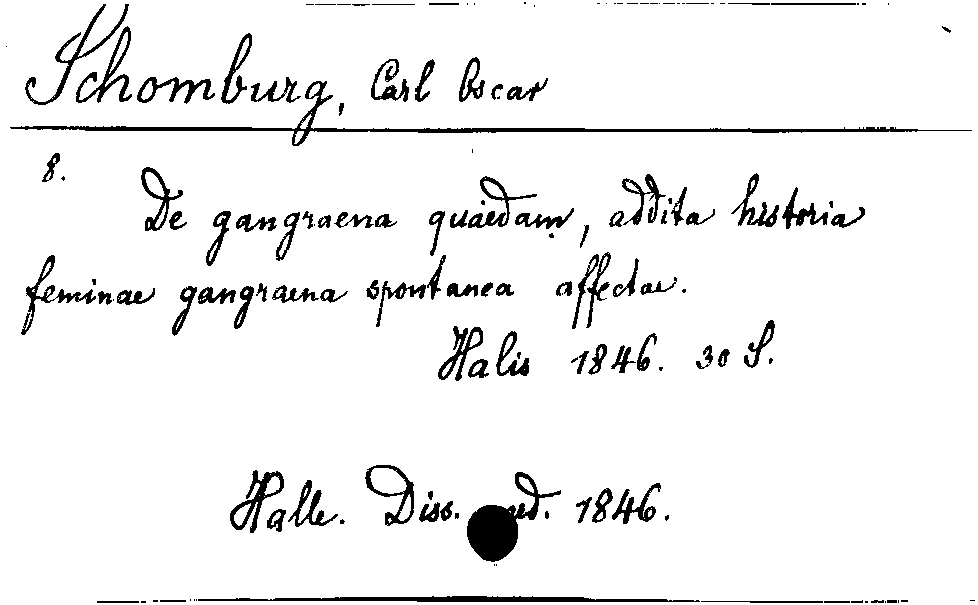 Schomburg, Carl Oscar
8.
De gangraena quaedam, addita historia
feminae gangraena spontanea affectae.
Halis 1846. 30 S.
Halle. Diss. 1846.